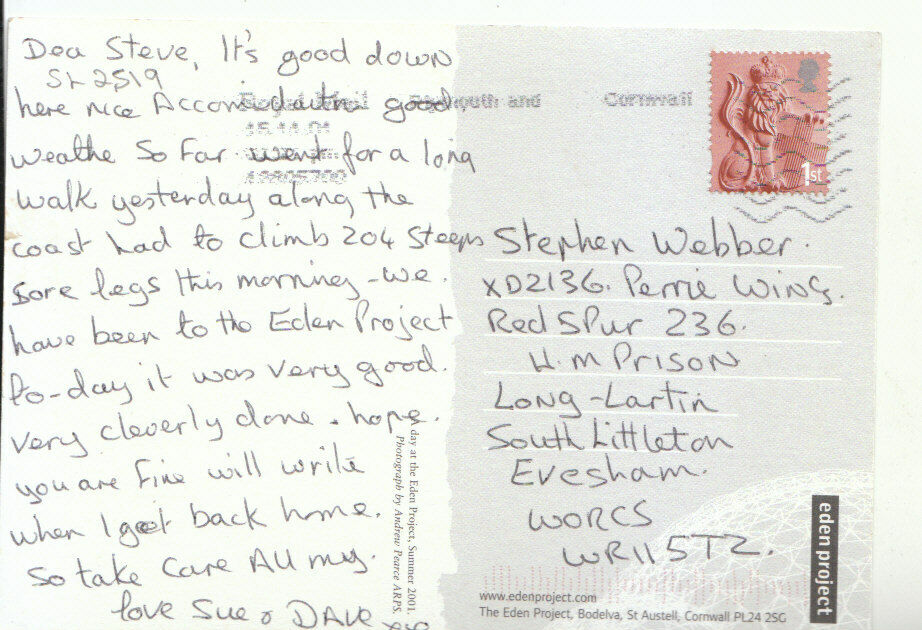 Dea Steve, It's good down
SL2519
here nice Accom datn good.
weathe So Far went for a long
walk yesterday along the
coast had to climb 204 Steeps
sore legs this morning - we.
have been to the Eden Project
to-day it was very good.
very cleverly done. hope.
you are Fine will write
when I get back home.
So take care All my.
love Sue & DAVE
xxx
Royal Mail Plymouth and Cornwall
15.11.01
1st
Stephen Webber.
XD2136. Perrie Wing.
Red SPur 236.
H.M Prison
Long-Lartin
South Littleton
Evesham.
WORCS
WR11 5TZ.
A day at the Eden Project, Summer 2001.
Photograph by Andrew Pearce ARPS.
eden project
www.edenproject.com
The Eden Project, Bodelva, St Austell, Cornwall PL24 2SG